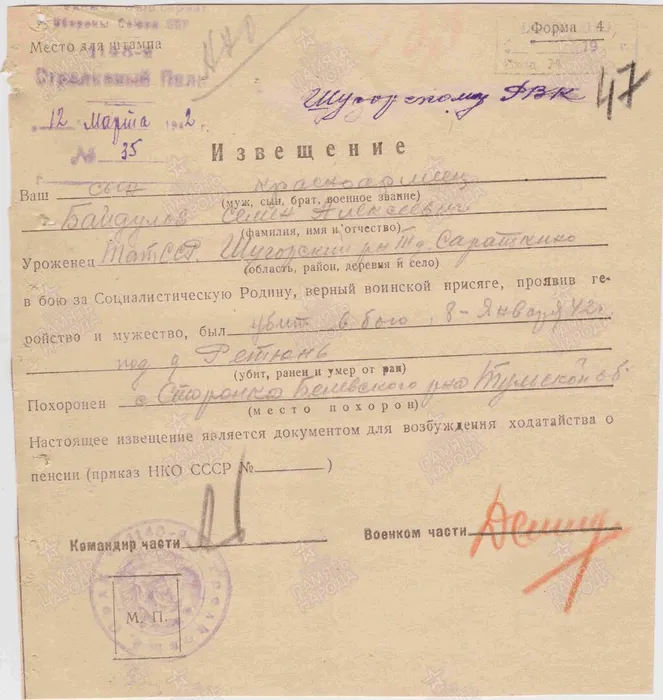 Обороны Союза ССР
Форма 4
Место для штампа
1140-й
Стрелковый Полк
ННО
Шугорскому РВК
47
12 Марта 1942 г.
№ 35
Извещение
Ваш сын красноармеец
(муж, сын, брат, военное звание)
Байдулов Семен Алексеевич
(фамилия, имя и отчество)
Уроженец ТатССР. Шугорский р-н д. Сараткино
(область, район, деревня и село)
в бою за Социалистическую Родину, верный воинской присяге, проявив ге-
ройство и мужество, был убит в бою 8-Января 42г
под д Ретюнь
(убит, ранен и умер от ран)
Похоронен с. Сторонка Белевского р-на Тульской об.
(место похорон)
Настоящее извещение является документом для возбуждения ходатайства о
пенсии (приказ НКО СССР № )
Командир части
Военком части
М. П.
ПАМЯТЬ НАРОДА